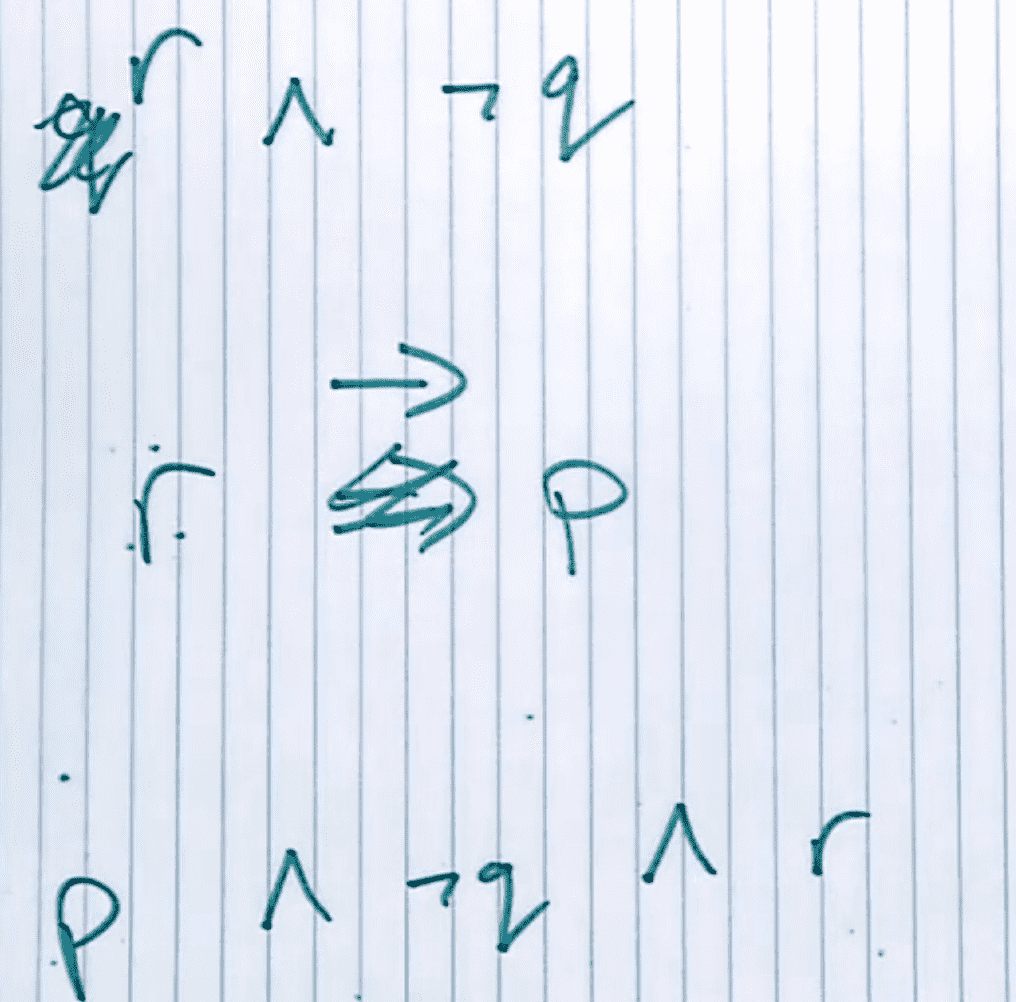 r ∧ ¬ q
r → p
p ∧ ¬q ∧ r